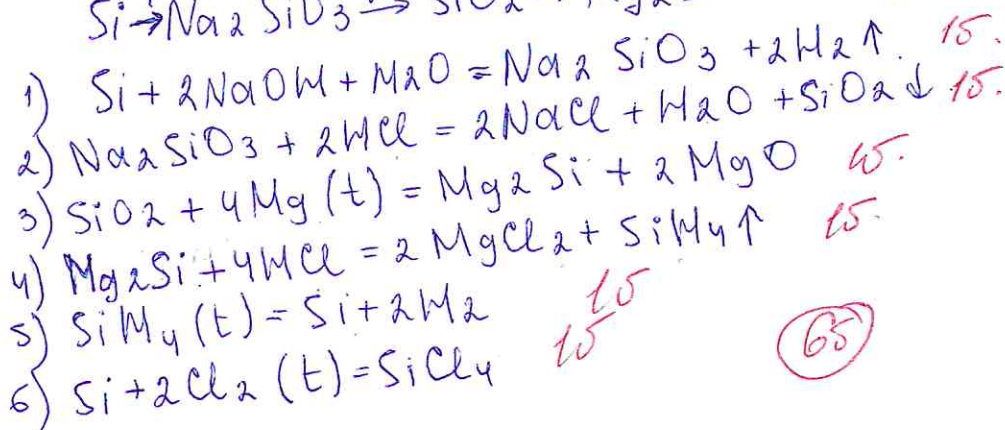 Si→Na2SiO3→SiO2
1) Si + 2NaOH + H2O = Na2SiO3 + 2H2↑. 1б.
2) Na2SiO3 + 2HCl = 2NaCl + H2O + SiO2↓ 1б.
3) SiO2 + 4Mg (t) = Mg2Si + 2MgO 1б.
4) Mg2Si + 4HCl = 2MgCl2 + SiH4↑ 1б.
5) SiH4 (t) = Si + 2H2 1б
6) Si + 2Cl2 (t) = SiCl4 1б
6б